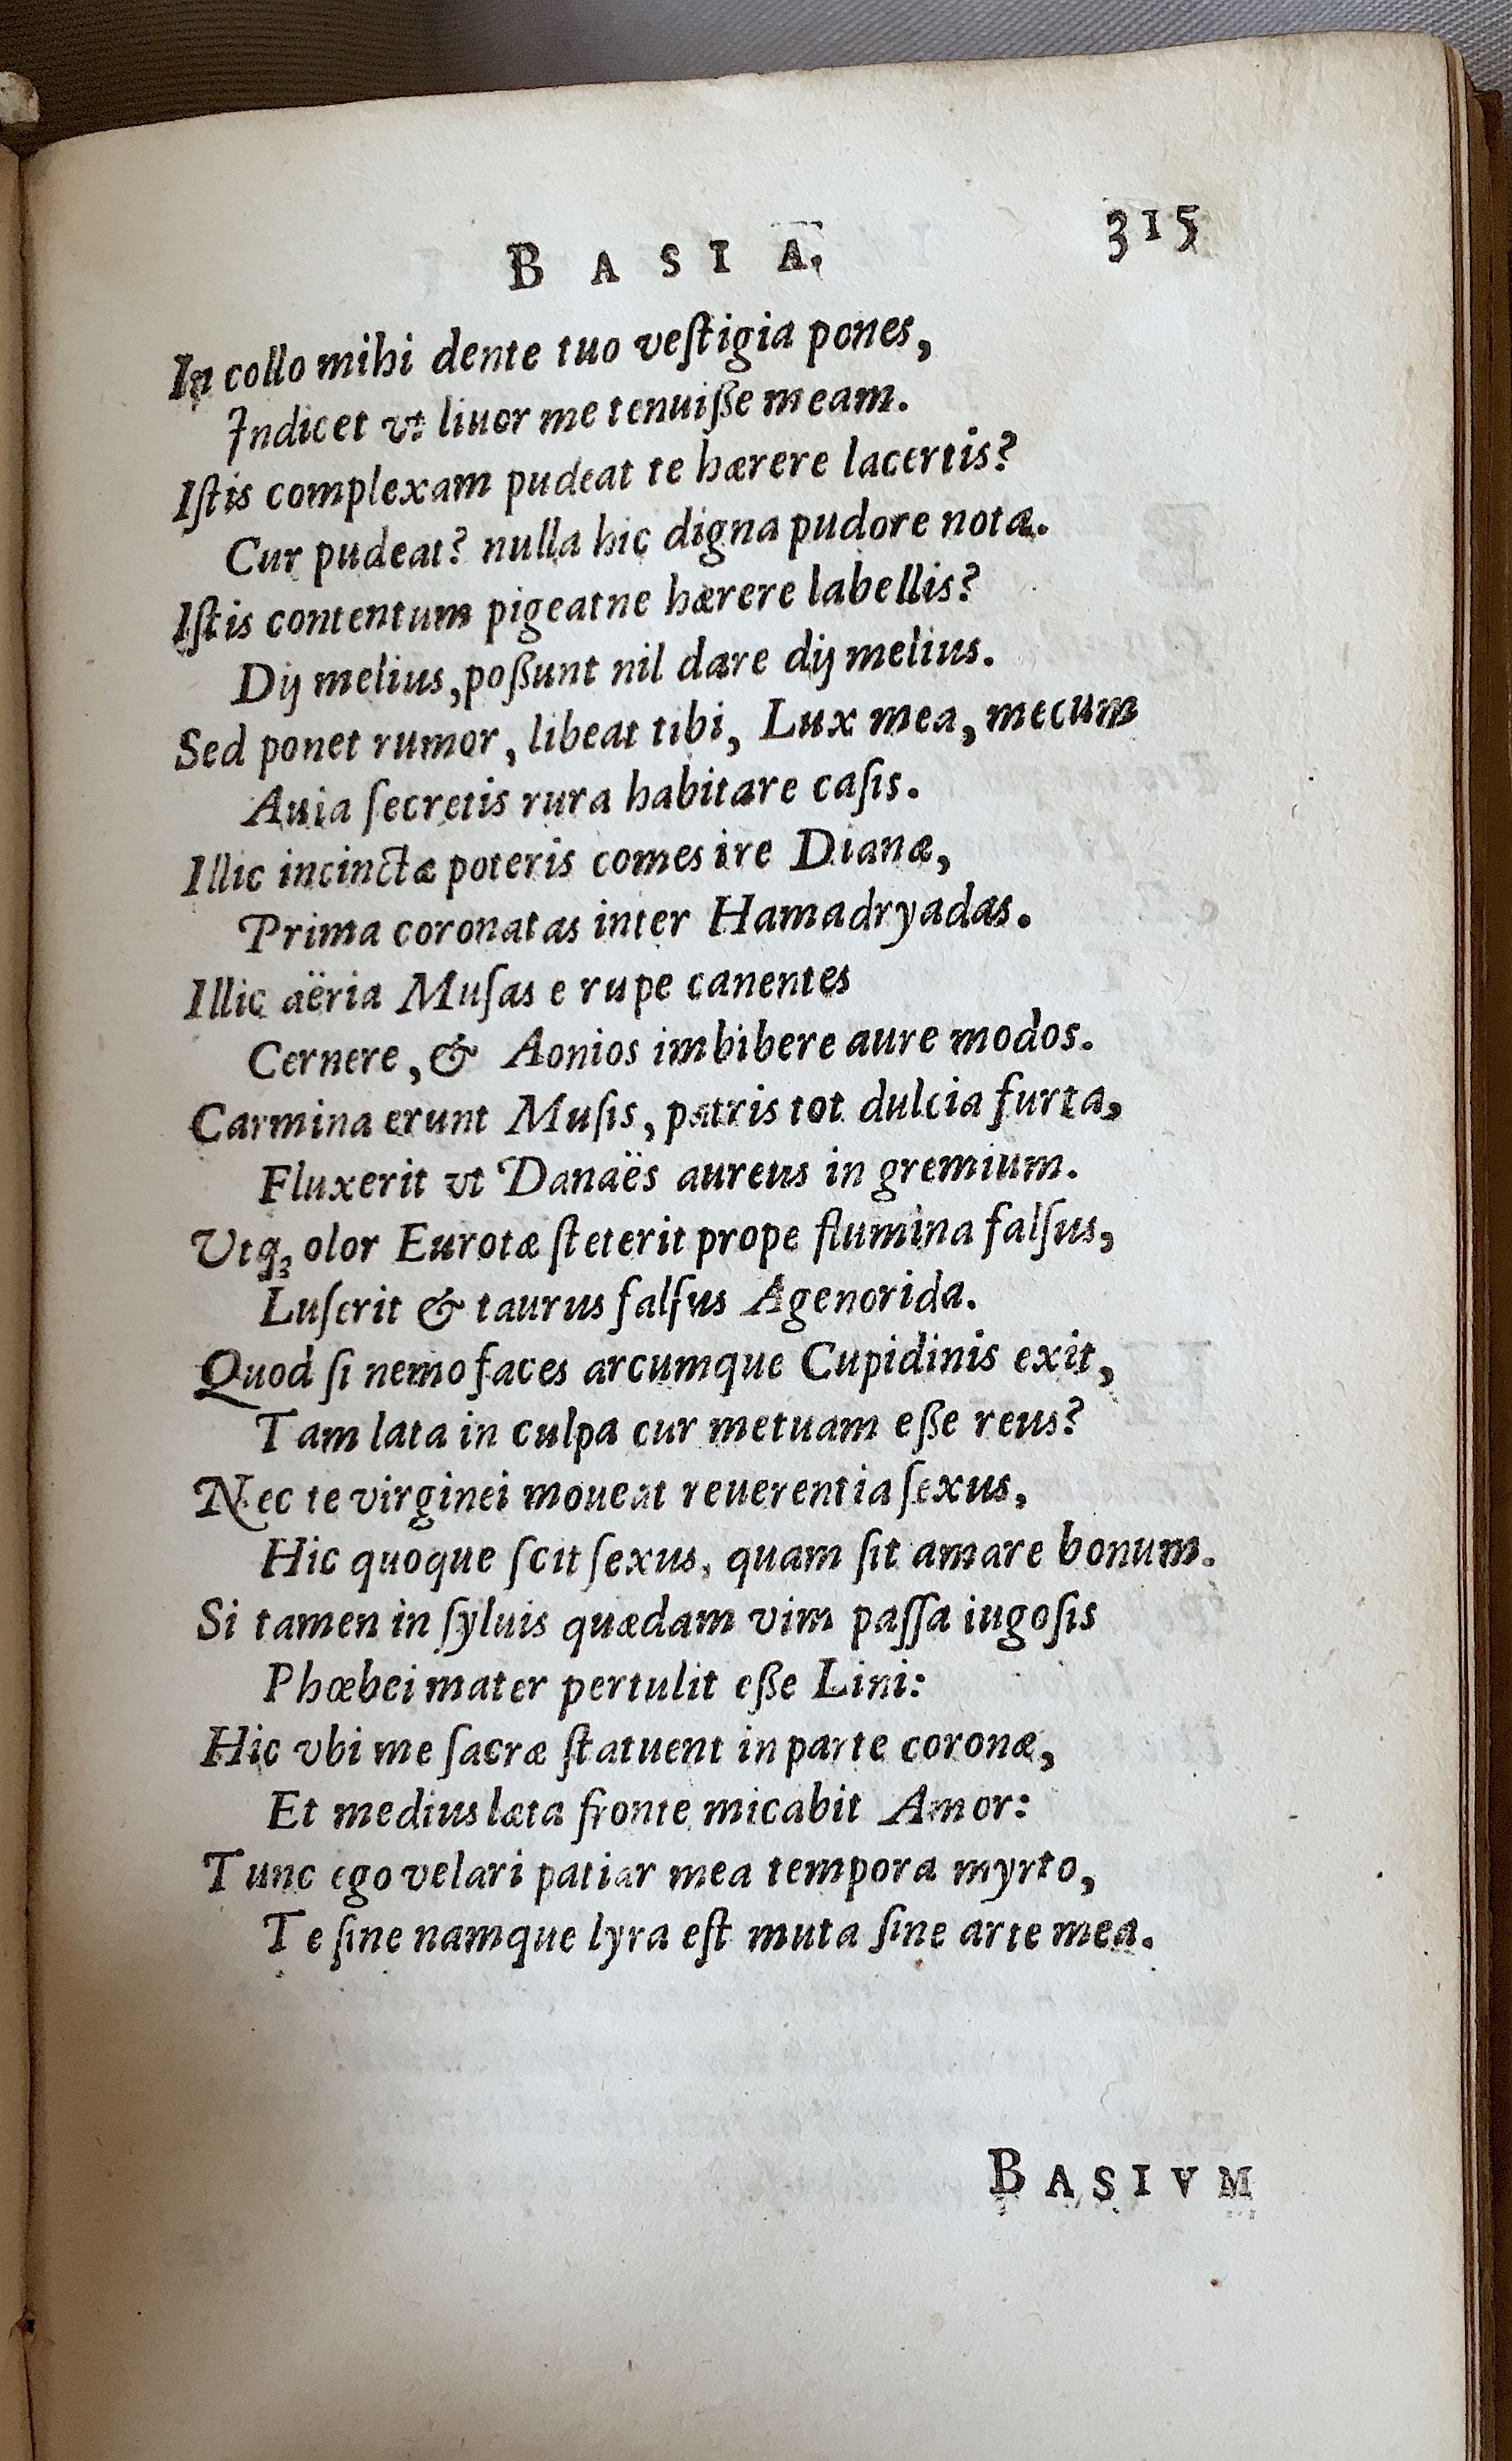 BASIA. 315
In collo mihi dente tuo veſtigia pones,
Indicet vt liuor me tenuiße meam.
Iſtis complexam pudeat te hærere lacertis?
Cur pudeat? nulla hic digna pudore nota.
Iſtis contentum pigeatne hærere labellis?
Dij melius, poßunt nil dare dij melius.
Sed ponet rumor, libeat tibi, Lux mea, mecum
Auia ſecretis rura habitare caſis.
Illic incinctæ poteris comes ire Dianæ,
Prima coronatas inter Hamadryadas.
Illic aëria Muſas e rupe canentes
Cernere, & Aonios imbibere aure modos.
Carmina erunt Muſis, patris tot dulcia furta,
Fluxerit vt Danaës aureus in gremium.
Vtq; olor Eurotæ ſteterit prope flumina falſus,
Luſerit & taurus falſus Agenorida.
Quod ſi nemo faces arcumque Cupidinis exit,
Tam lata in culpa cur metuam eße reus?
Nec te virginei moueat reuerentia ſexus,
Hic quoque ſcit ſexus, quam ſit amare bonum.
Si tamen in ſyluis quædam vim paſſa iugoſis
Phœbei mater pertulit eße Lini:
Hic vbi me ſacræ ſtatuent in parte coronæ,
Et medius læta fronte micabit Amor:
Tunc ego velari patiar mea tempora myrto,
Te ſine namque lyra eſt muta ſine arte mea.
BASIVM